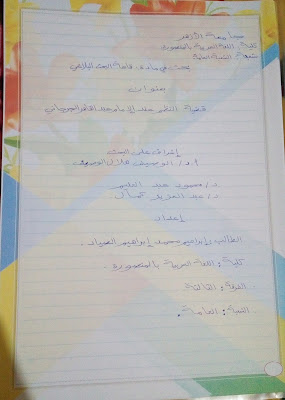 جامعة الأزهر
كلية اللغة العربية بالمنصورة
الشعبة العامة
بحث في مادة قاعة البحث البلاغي
بعنوان
قضية النظم عند الإمام عبد القاهر الجرجاني
إشراف على البحث
أ.د/ الوصيف هلال الوصيف
د/ محمود عبد العليم
د/ عبد العزيز كمال
إعداد
الطالب/ إبراهيم محمد إبراهيم الصياد.
كلية: اللغة العربية بالمنصورة.
الفرقة: الثالثة
الشعبة: العامة.